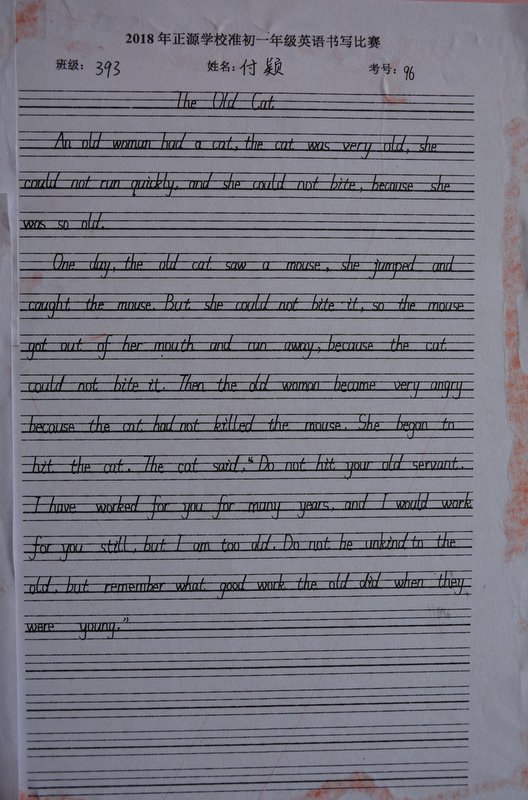 2018年正源学校准初一年级英语书写比赛
班级：393 姓名：付颖 考号：96
The Old Cat
An old woman had a cat, the cat was very old, she
could not run quickly, and she could not bite, because she
was so old.
One day, the old cat saw a mouse, she jumped and
caught the mouse. But she could not bite it, so the mouse
got out of her mouth and ran away, because the cat
could not bite it. Then the old woman became very angry
because the cat had not killed the mouse. She began to
hit the cat. The cat said, "Do not hit your old servant.
I have worked for you for many years, and I would work
for you still, but I am too old. Do not be unkind to the
old, but remember what good work the old did when they
were young."